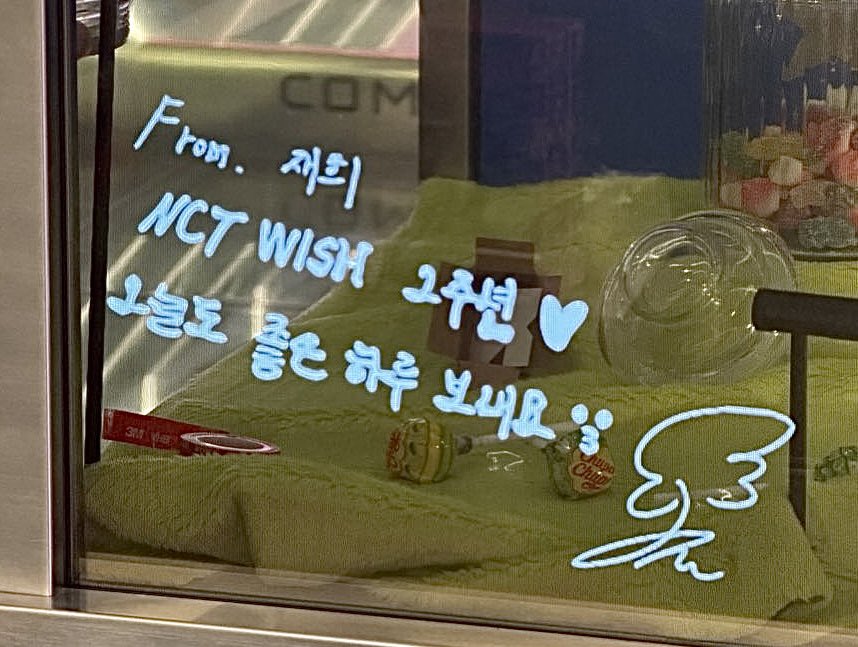 COM
From. 재희
NCT WISH 2주년 ♡
오늘도 좋은 하루 보내요
3M
Chupa
Chups